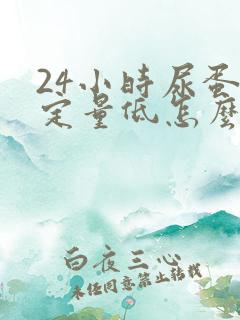 24小时尿蛋
定量低怎么
白夜三心
未经同意禁止转载